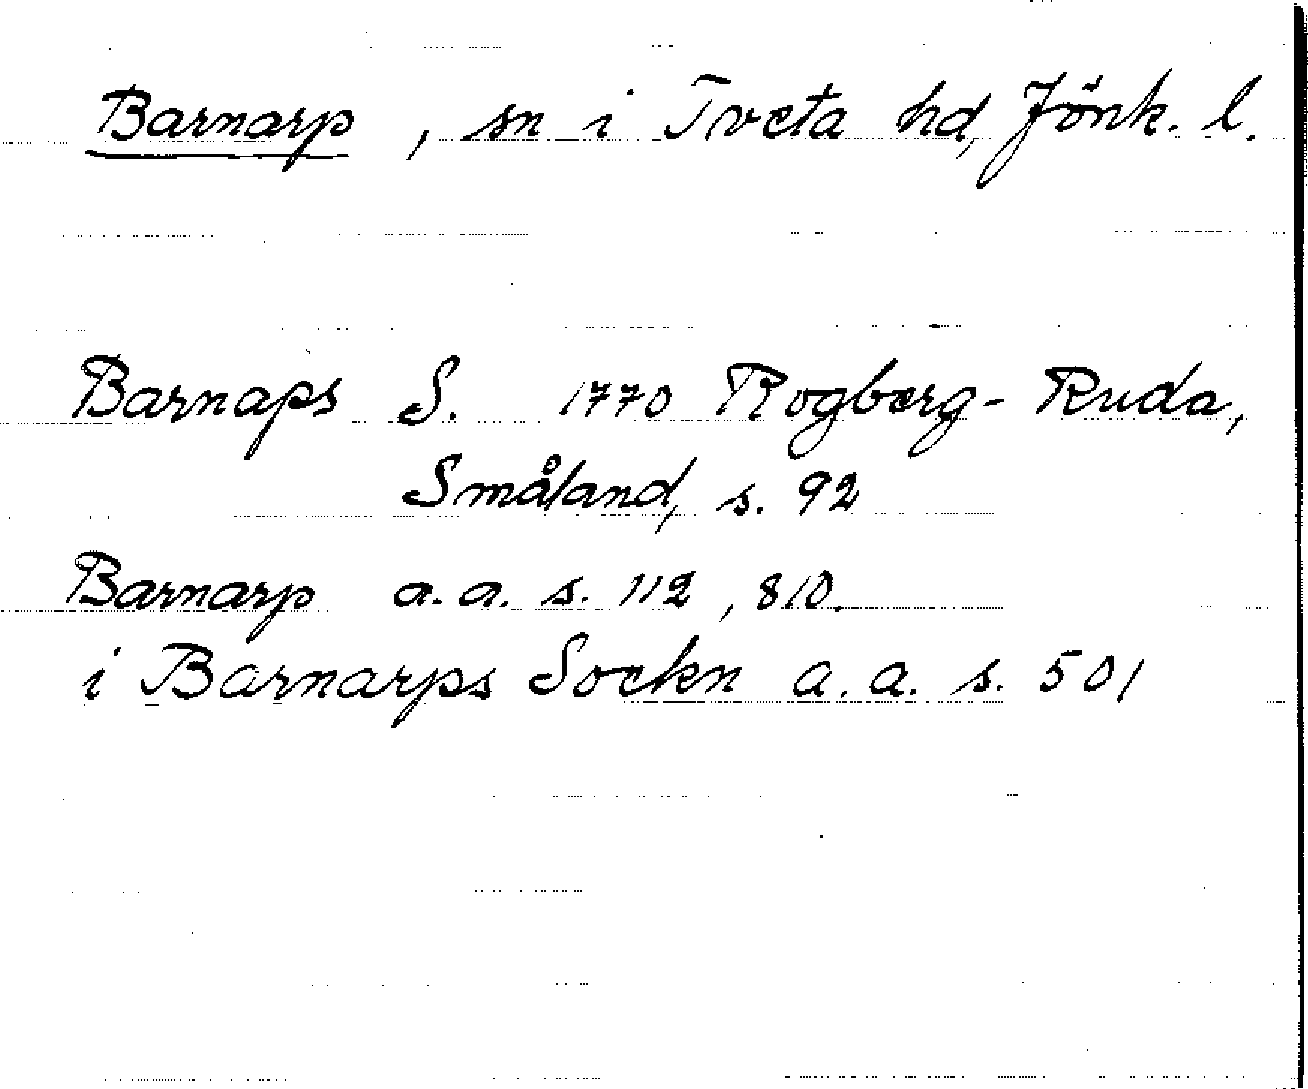 Barnarp, sn i Tveta hd, Jönk. l.
Barnaps S. 1770 Rogberg-Ruda,
Småland, s. 92
Barnarp a.a. s. 112, 810.
i Barnarps Sockn a.a. s. 501